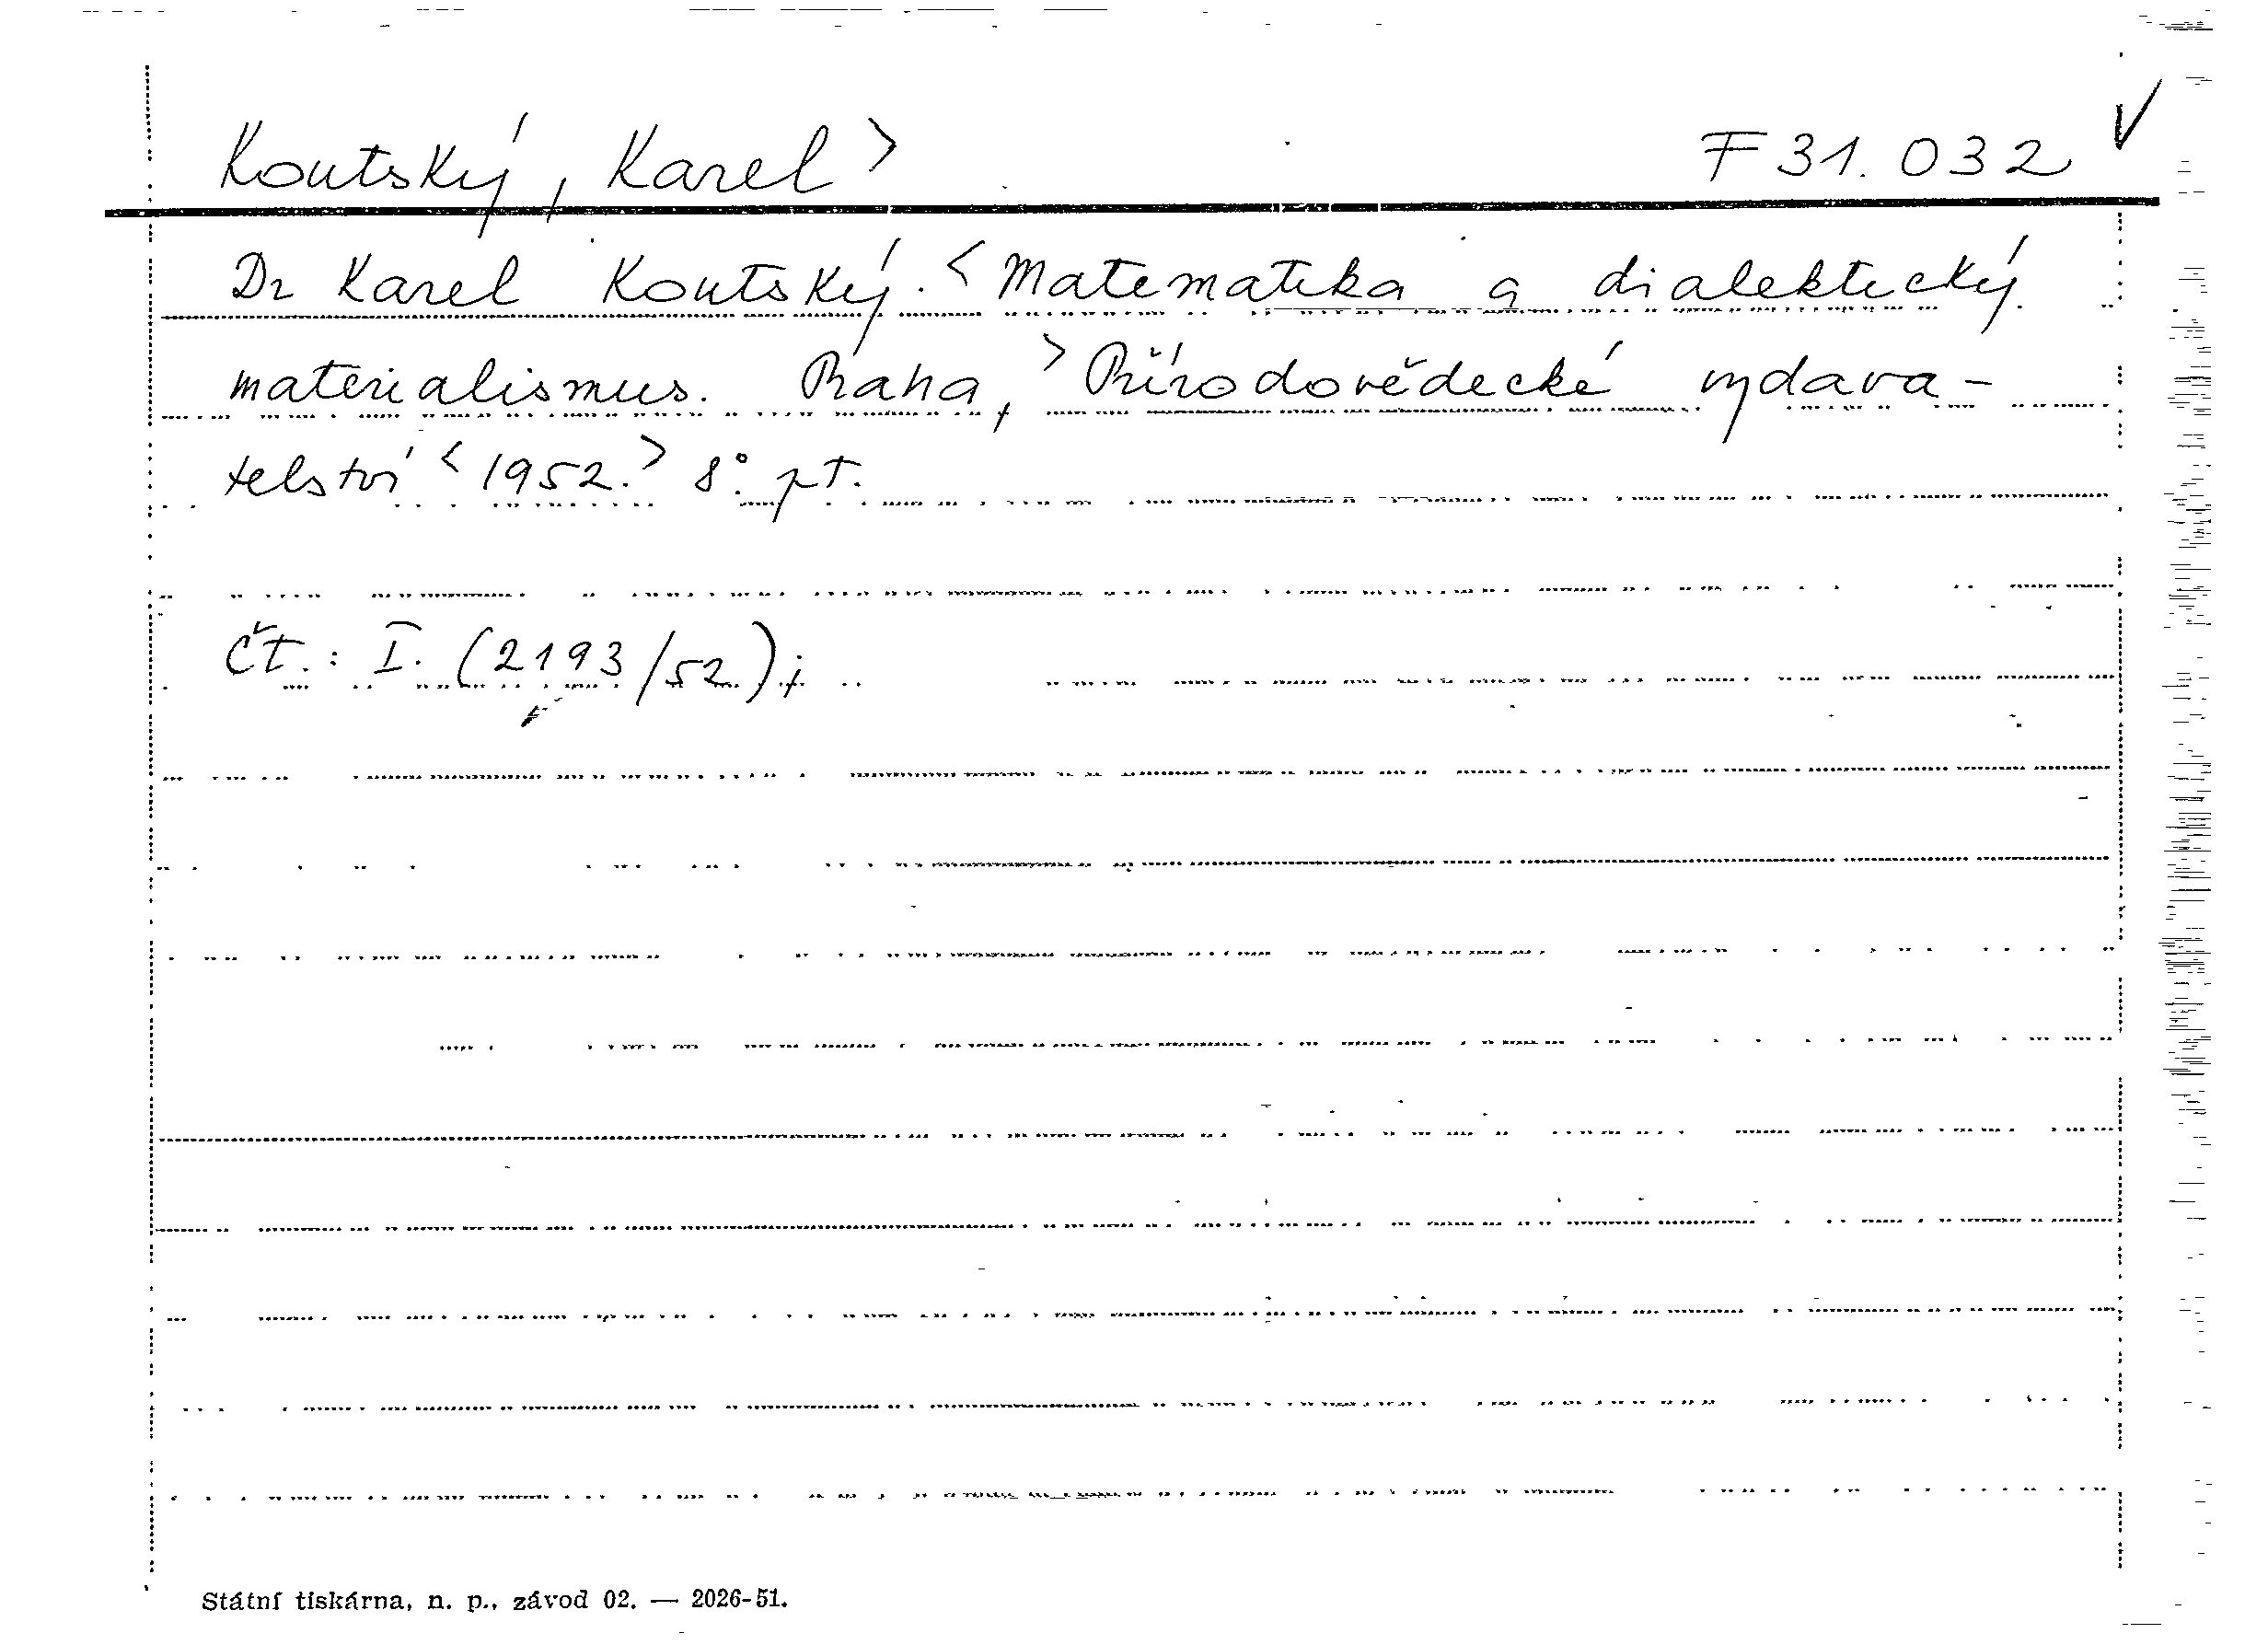 Koutský, Karel > F 31.032 √
Dr Karel Koutský. < Matematika a dialektický
materialismus. Praha, > Přírodovědecké vydava-
telství < 1952. > 8°. pt.
Čt.: I. (2193/52);
Státní tiskárna, n. p., závod 02. — 2026-51.